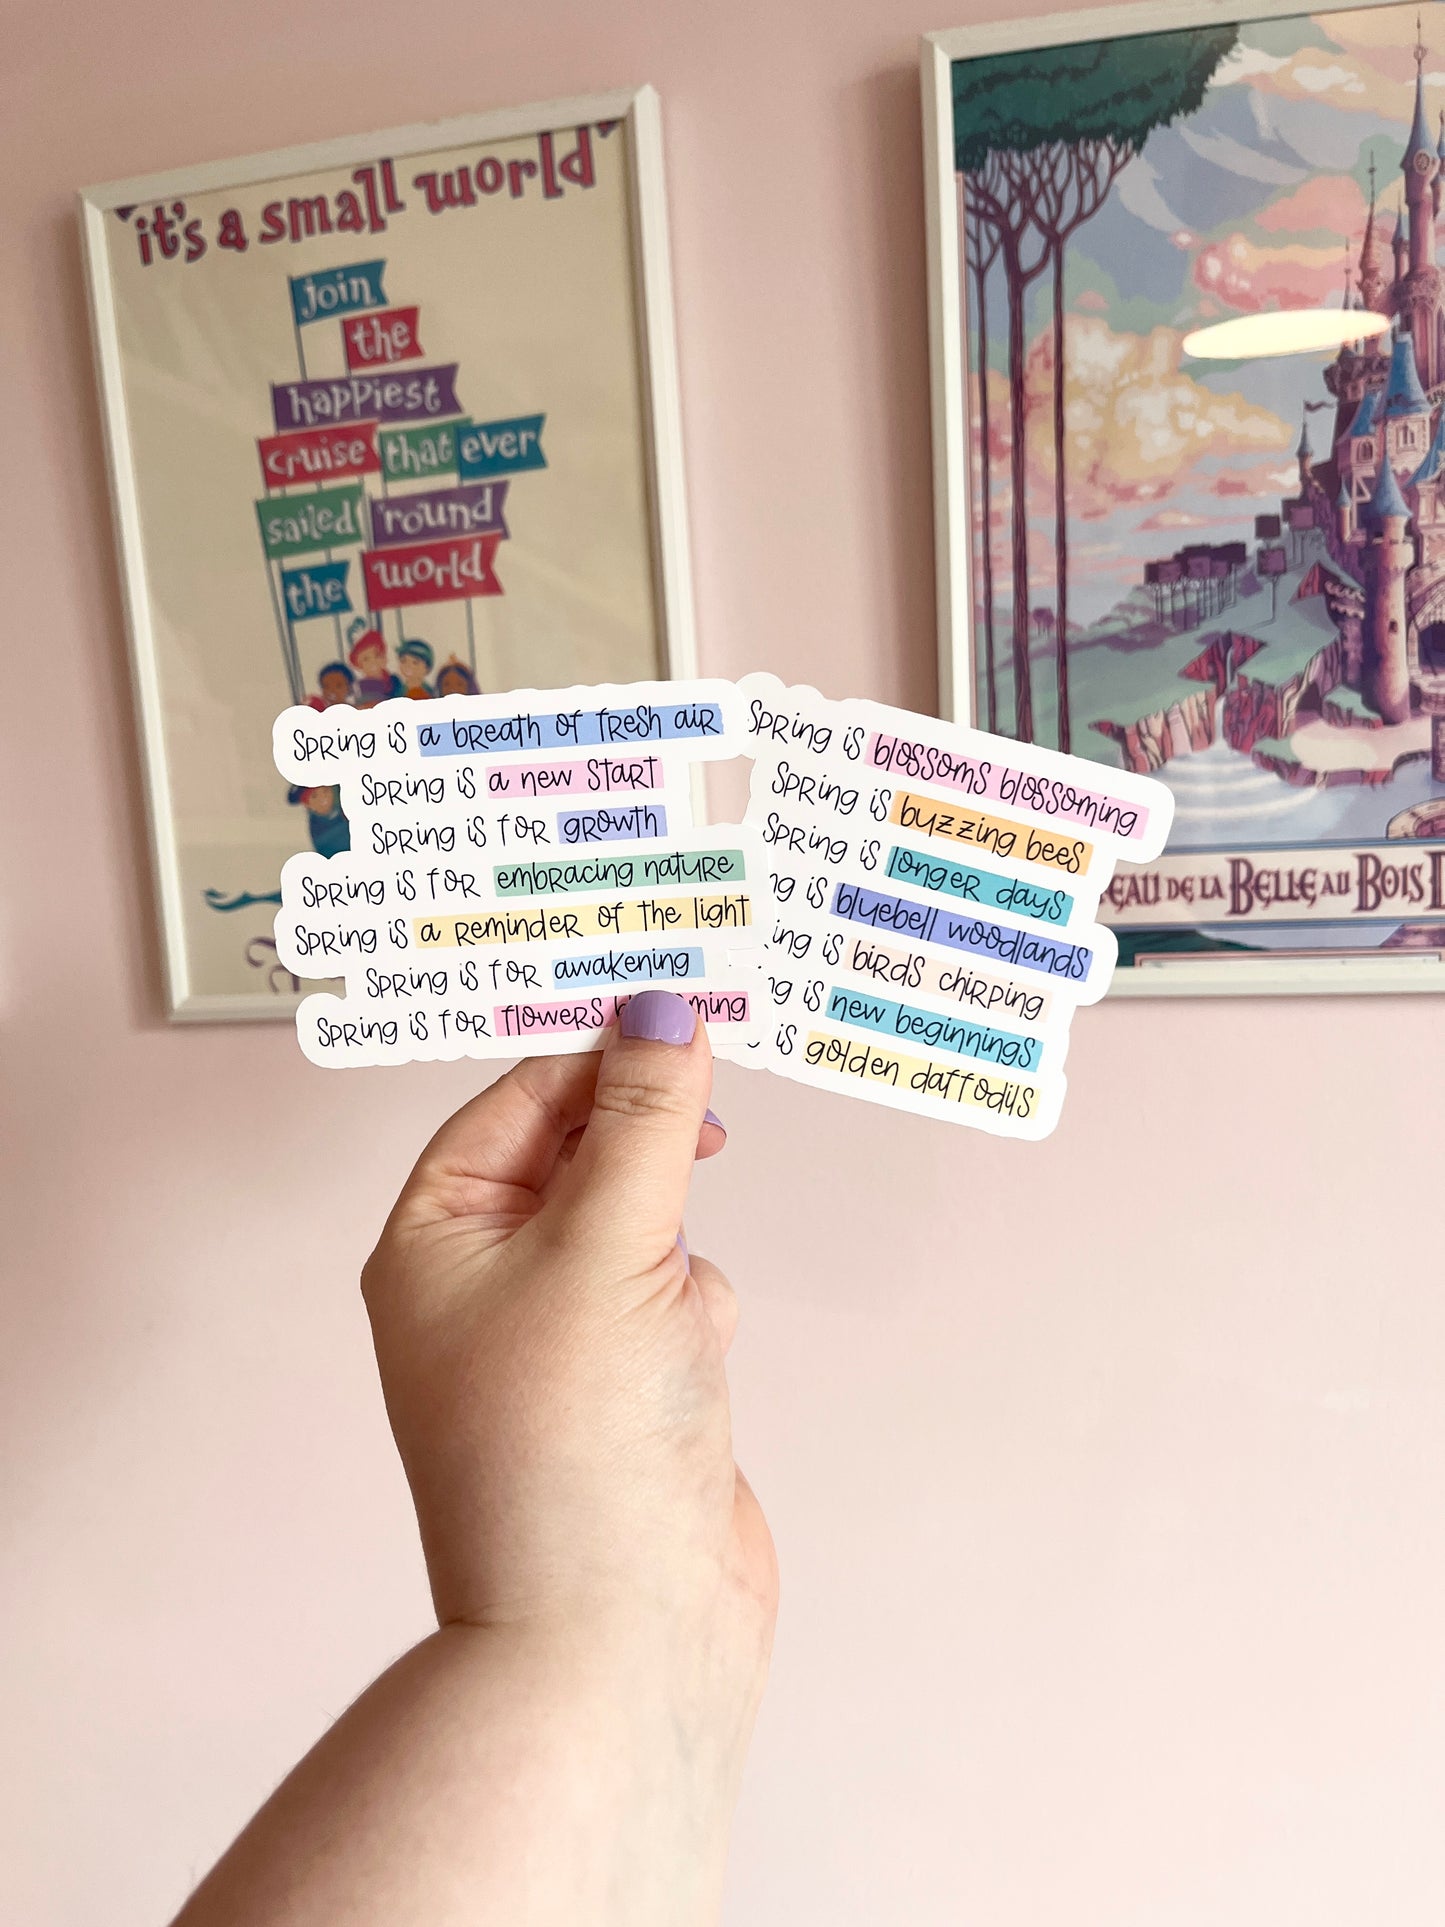 it's a small world
join
the
happiest
cruise that ever
sailed 'round
the world
Spring is a breath of fresh air
Spring is a new start
Spring is for growth
Spring is for embracing nature
Spring is a reminder of the light
Spring is for awakening
Spring is for flowers
Spring is blossoms blossoming
Spring is buzzing bees
Spring is longer days
is bluebell woodlands
is birds chirping
is new beginnings
is golden daffodils
DE LA BELLE AU BOIS